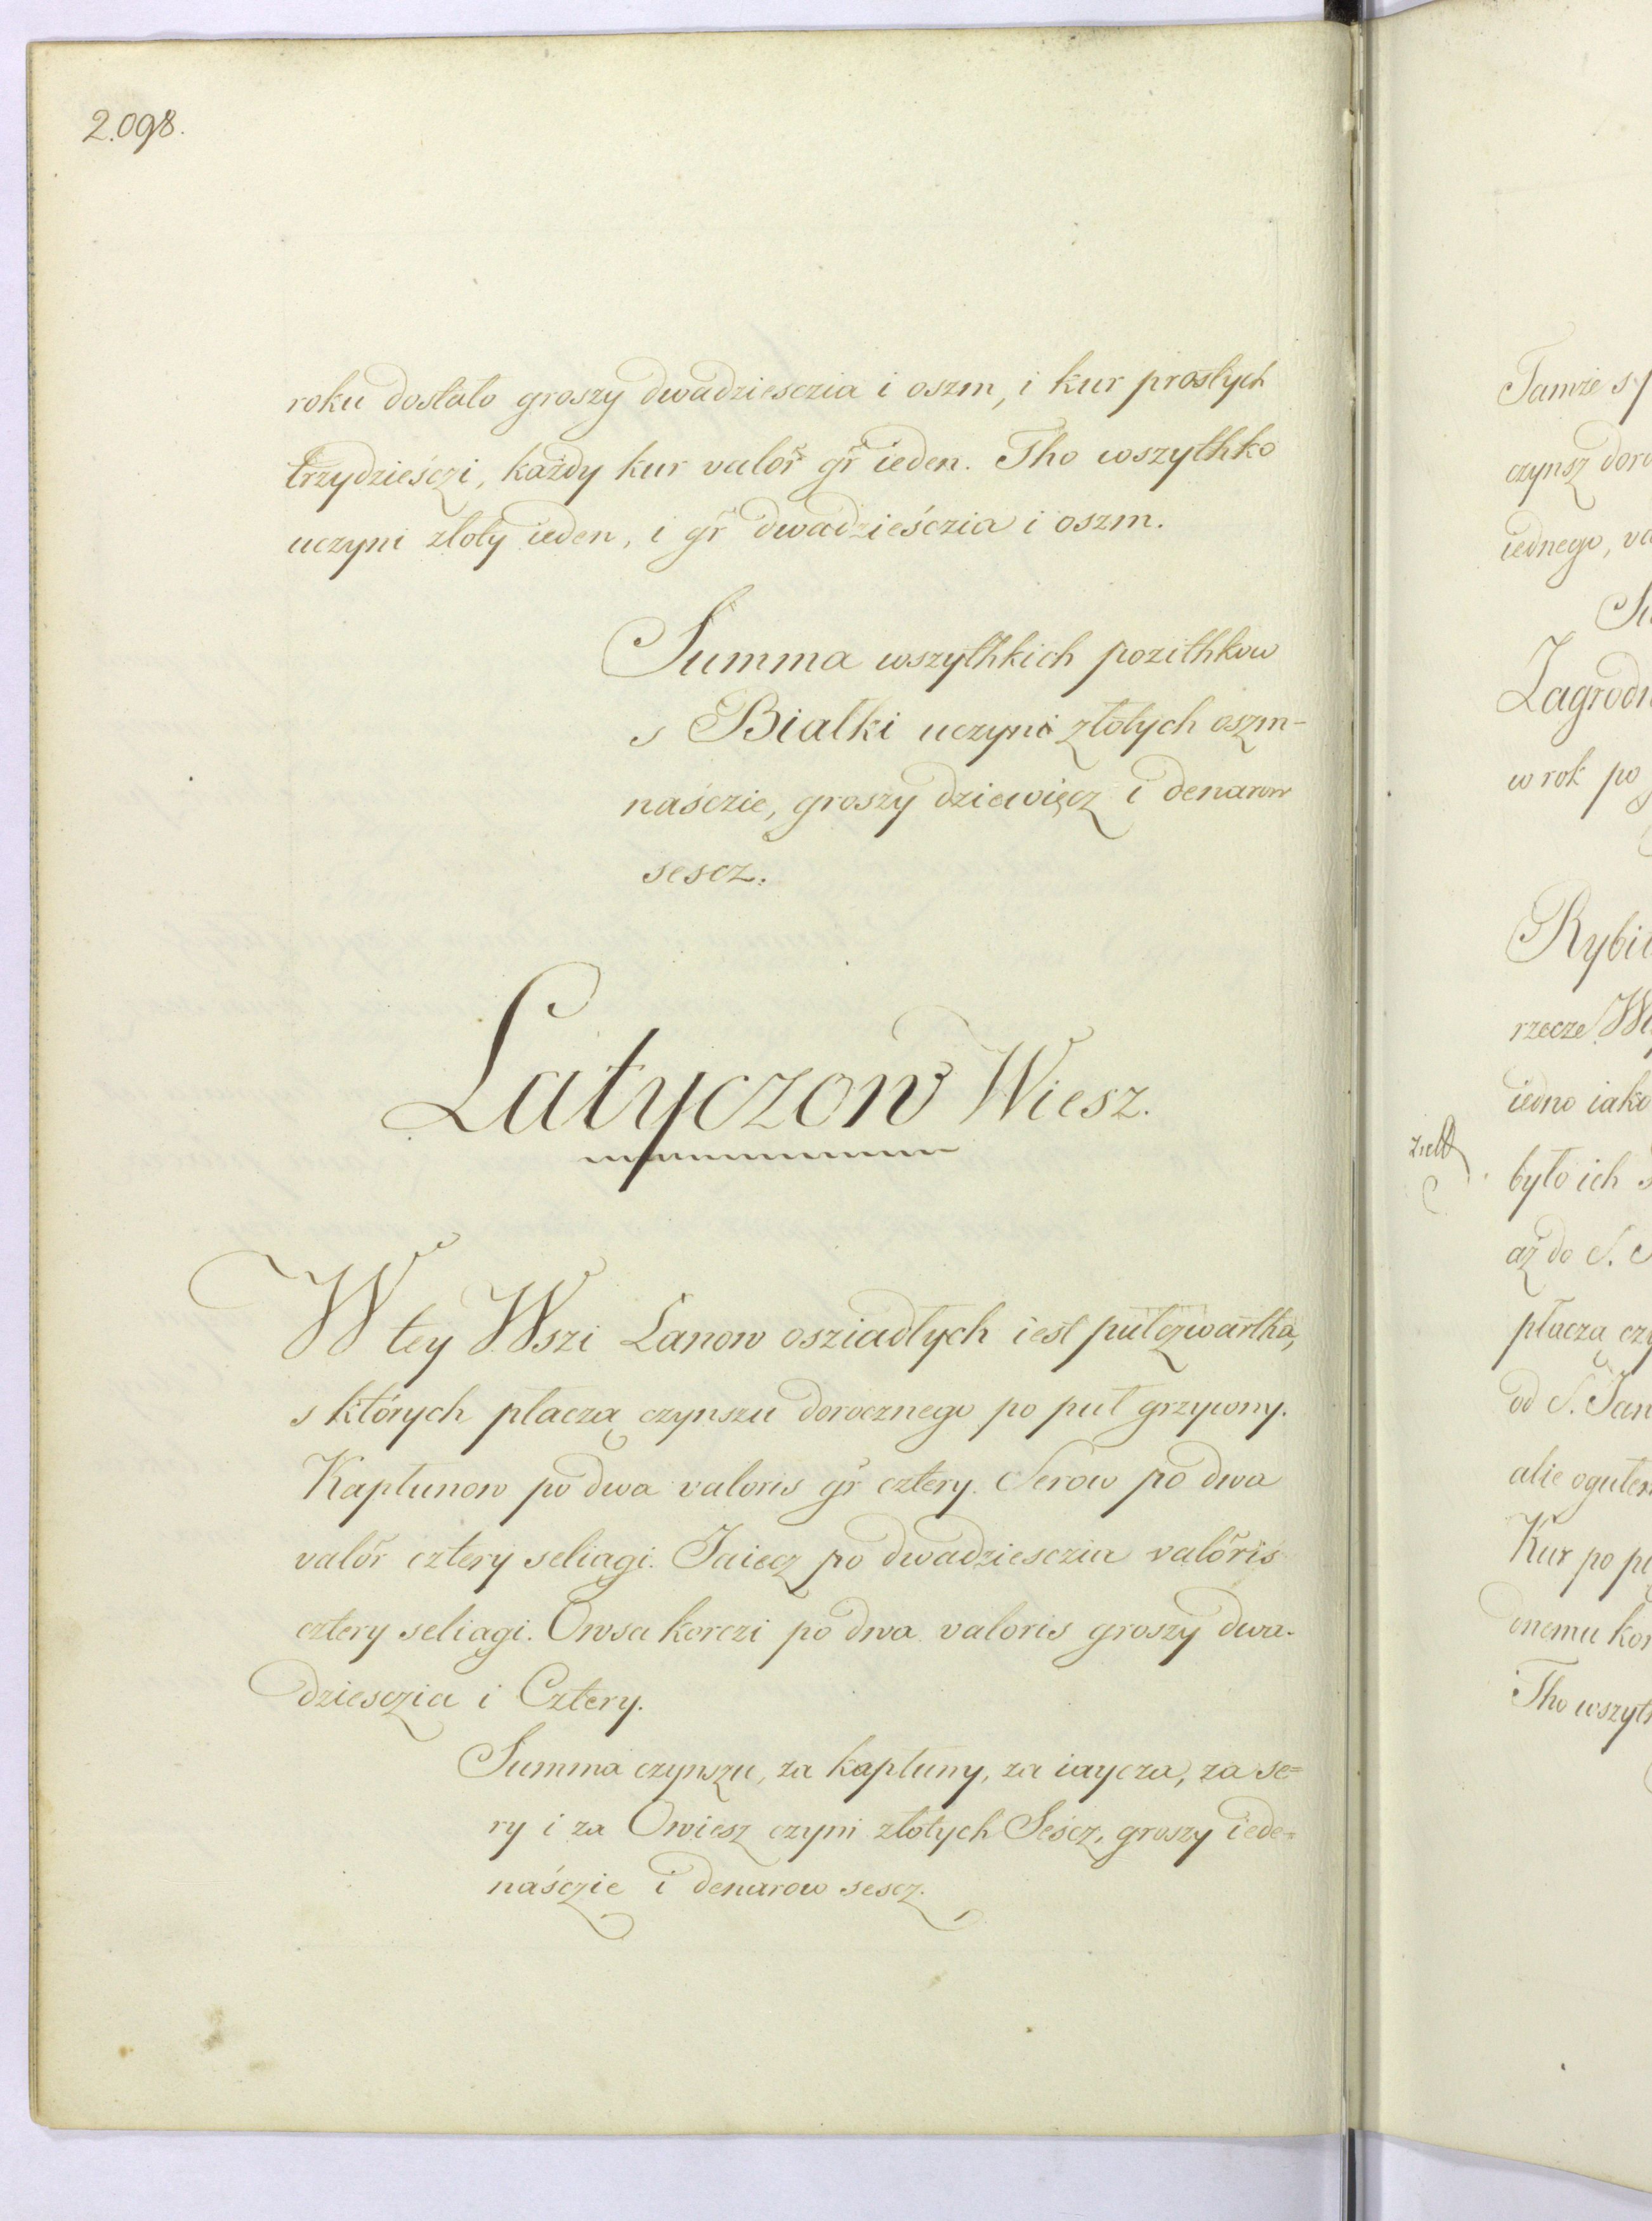 2.098.
roku dostało groszy dwadziesczia i oszm, i kur prostych
trzydzieśczi, każdy kur valor gr ieden. Tho wszythko
uczyni złoty ieden, i gr dwadzieśczia i oszm.
Summa wszythkich pozithkow
s Białki uczyni złotych oszm-
naśczie, groszy dziewięcz i denarow
sescz.
Latyczow Wiesz.
W tey Wszi Łanow osziadłych iest pułczwartha,
s których płaczą czynszu dorocznego po puł grzywny.
Kapłunow po dwa valoris gr cztery. Serow po dwa
valor cztery seliagi. Jaiecz po dwadziesczia valoris
cztery seliagi. Owsa korczi po dwa valoris groszy dwa-
dziesczia i Cztery.
Summa czynszu, za kapłuny, za iaycza, za se=
ry i za Owiesz czyni złotych Seścz, groszy iede=
naśczie i denarow sescz.
Tamże s
czynsz
iednego,
w rok po
rzecze
iedno iako
było ich
aż do S.
płaczą
od S. Jan
alie
Kur po
Tho